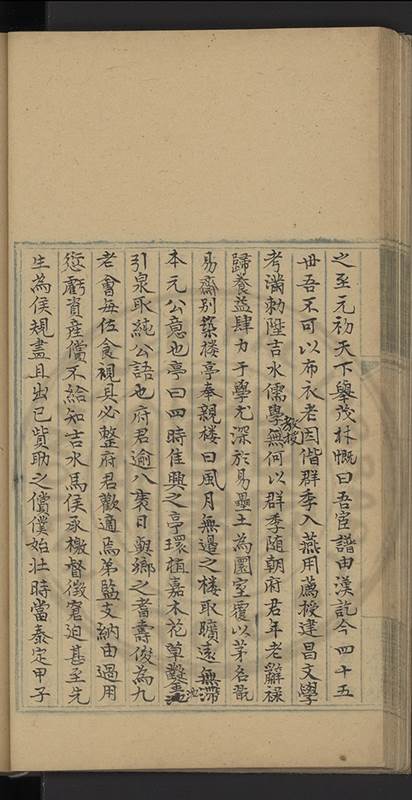 之至元初天下舉茂材慨曰吾宦譜由漢訖今四十五
世吾不可以布衣老因偕群季入燕用薦授建昌文學
考滿勑陞吉水儒學教授無何以群季随朝府君年老辭祿
歸養益肆力于學尤深於易壘土為圜室覆以茅名翫
易齋別築楼亭奉親楼曰風月無邊之楼取曠遠無滯
本元公意也亭曰四時佳興之亭環植嘉木花草鑿池沈
引泉取純公語也府君逾八袠日與鄉之耆壽俊為九
老會每伍食視具必整府君歡適焉弟監支納由過用
愆虧資産償不給知吉水馬侯承檄督徴窘迫甚至先
生為侯規畫且出已貲助之償僅始壮時當泰定甲子